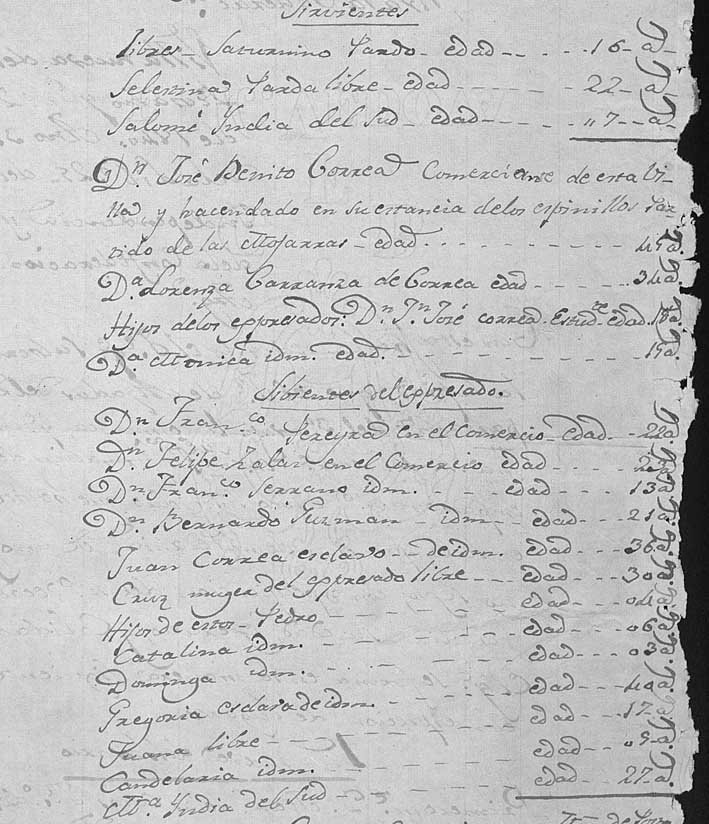 Sirvientes
Libres - Saturnino Pardo - edad - - - - - 16 - a.
Selestina Parda libre - edad - - - - - - - 22 - a.
Salomé India del Sud - edad - - - - - "7 - - a.
Dn. José Benito Correa Comerciante de esta Vi-
lla y hacendado en su estancia de los espinillos Par-
tido de las Mojarras - edad - - - - - - - 45 a.
Da. Lorenza Carranza de Correa edad - - - - - 34 a.
Hijos de los expresados: Dn. Jn. José Correa. Estude. edad.
Da. Monica idm. edad. - - - - - - - -
Sibientes del expresado.
Dn. Franco. Pereyra en el Comercio - edad - - 22 a.
Dn. Felipe Zalas en el Comercio edad - - - -
Dn. Franco. Serrano idm. - - - edad - - - - 13 a.
Dn. Bernardo Guzman - idm - - edad - - - 21 a.
Juan Correa esclavo - - de idm. edad - - - 36 a.
Cruz muger del expresado libre - - - edad - - - 30 a.
Hijos de estos - Pedro - - - - - - edad - - - 04 a.
Catalina idm. - - - - - - edad - - - 06 a.
Dominga idm. - - - - - - edad - - 03 a.
Gregoria esclava de idm. - - - - edad - - - 40 a.
Juana libre - - - - - - edad - - - 17 - a.
Candelaria idm. - - - - - - edad - - - 09 - a.
Ma. India del Sud - - - - - - edad - - - 27 a.